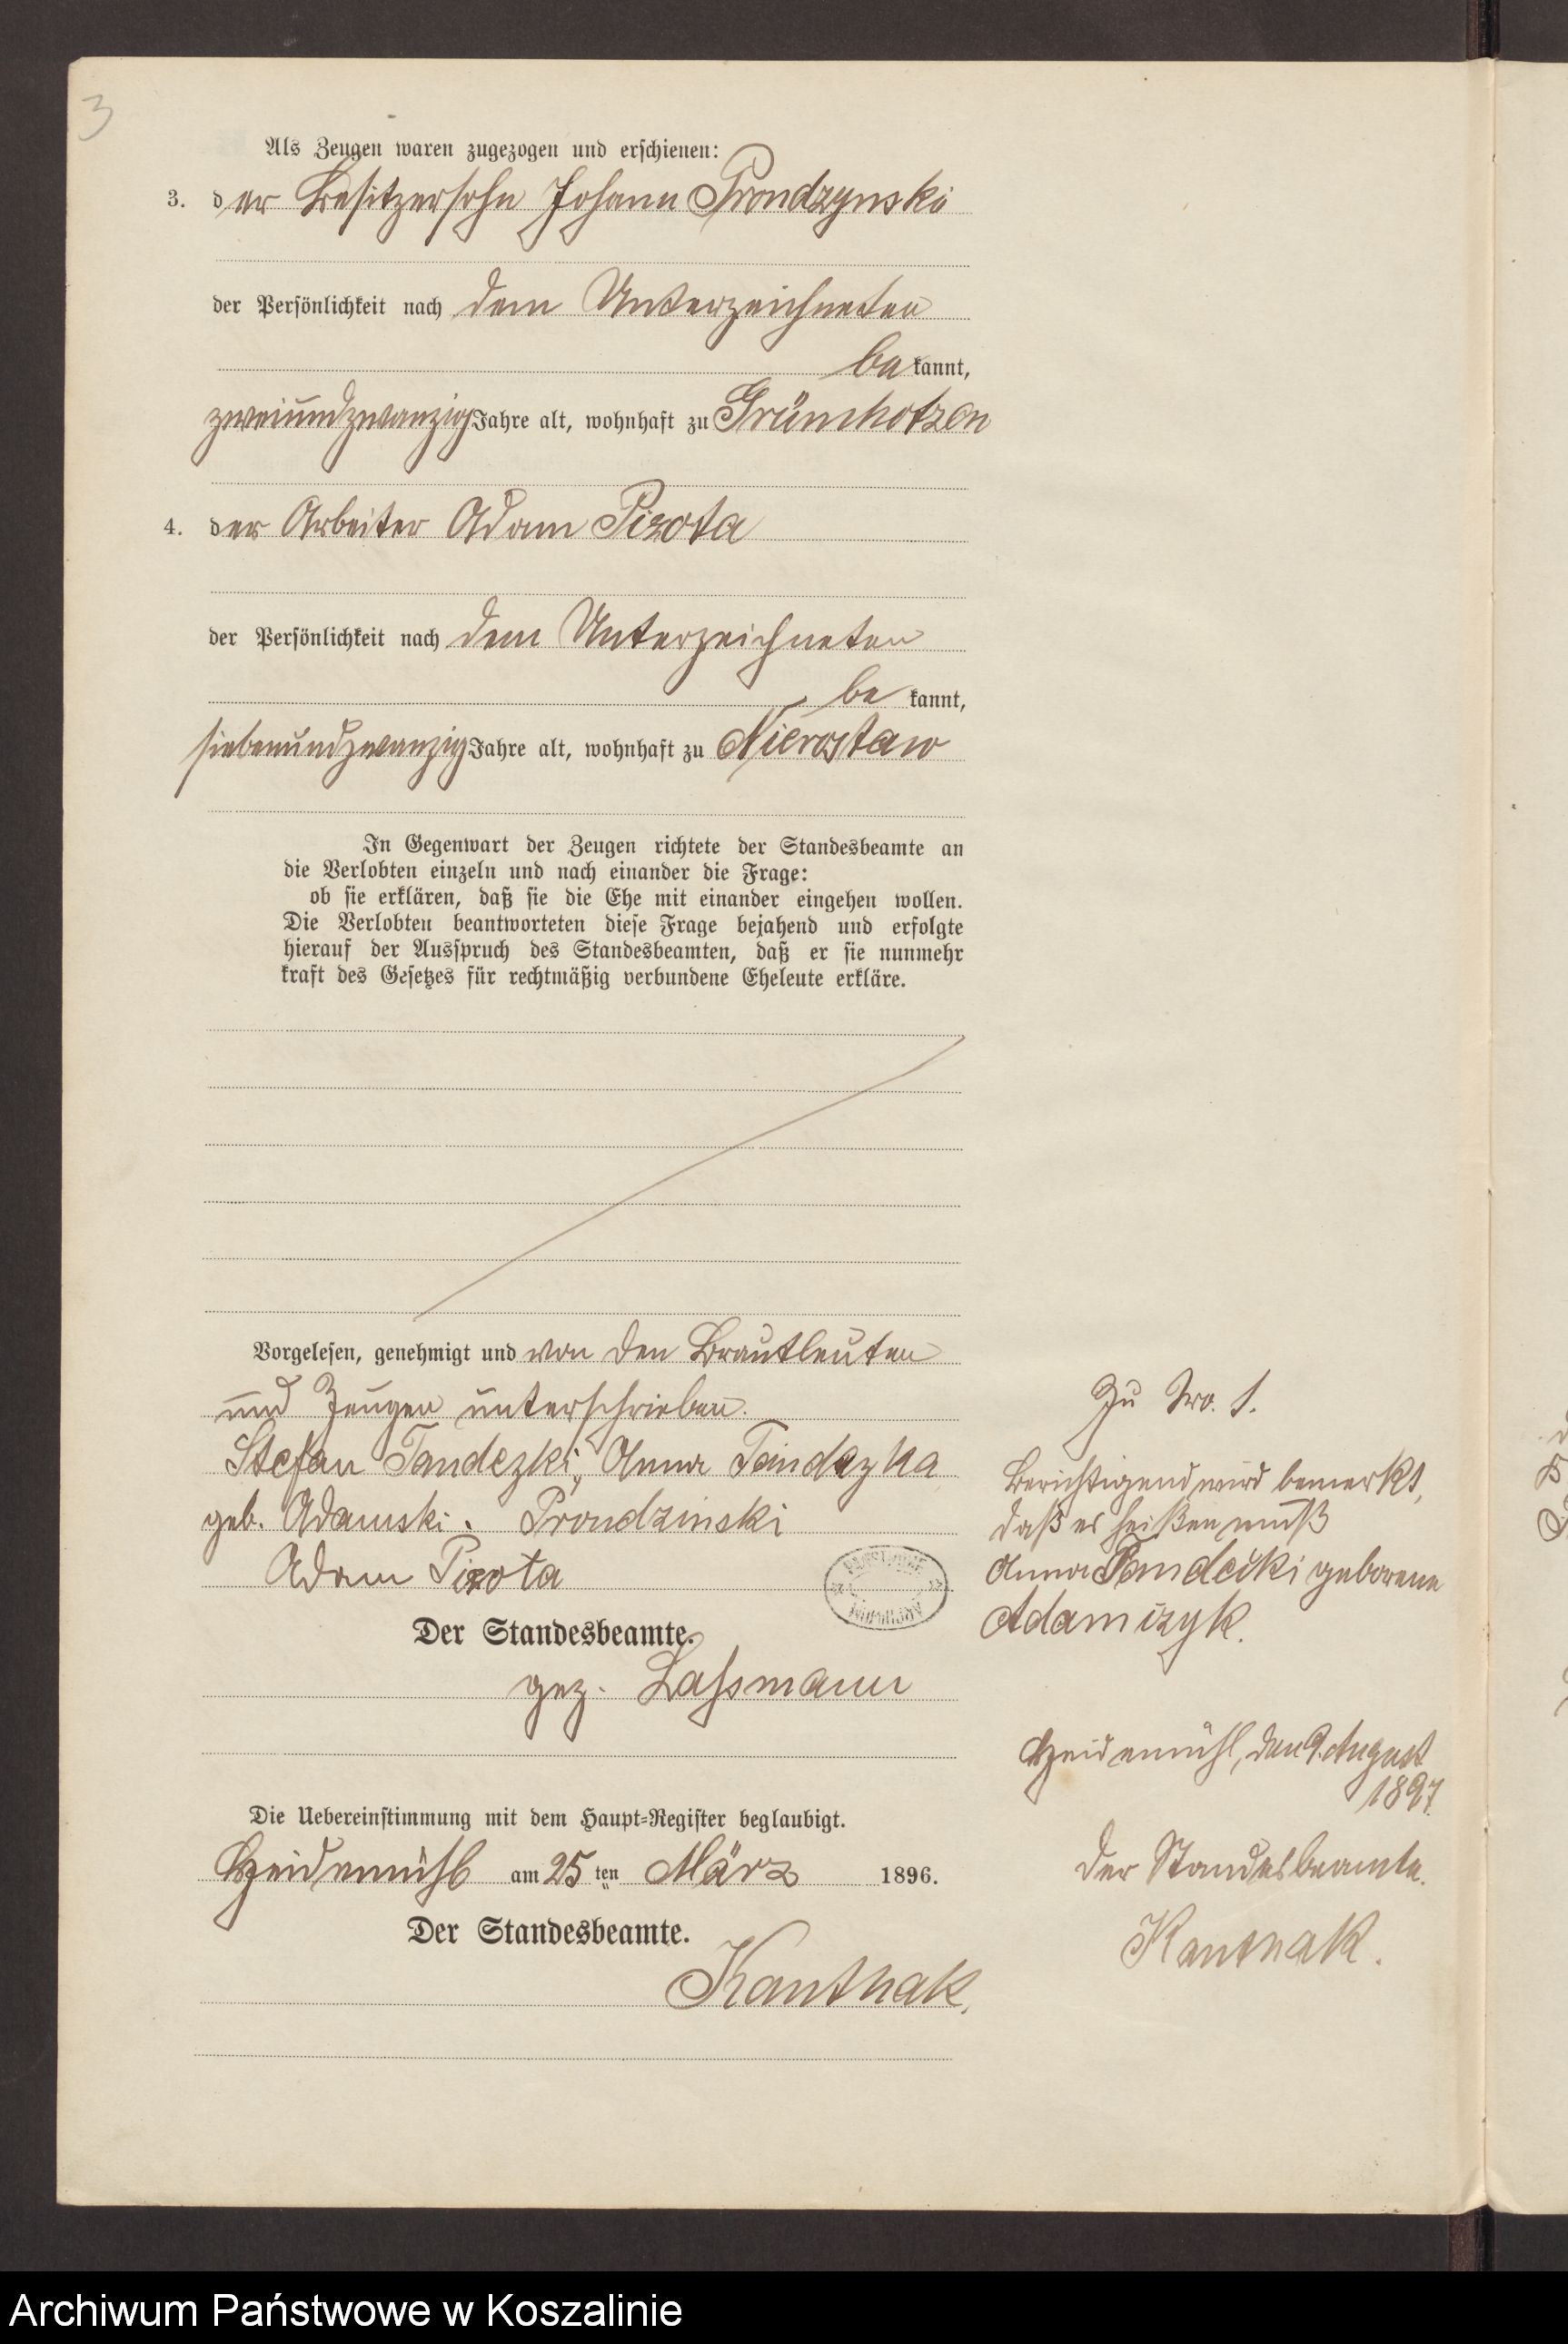 3
Als Zeugen waren zugezogen und erschienen:
3. der Besitzersohn Johann Prondzynski
der Persönlichkeit nach dem Unterzeichneten
be kannt,
zweiundzwanzig Jahre alt, wohnhaft zu Grünchotzen
4. der Arbeiter Adam Pizota
der Persönlichkeit nach dem Unterzeichneten
be kannt,
siebenundzwanzig Jahre alt, wohnhaft zu Nierostaw
In Gegenwart der Zeugen richtete der Standesbeamte an
die Verlobten einzeln und nach einander die Frage:
ob sie erklären, daß sie die Ehe mit einander eingehen wollen.
Die Verlobten beantworteten diese Frage bejahend und erfolgte
hierauf der Ausspruch des Standesbeamten, daß er sie nunmehr
kraft des Gesetzes für rechtmäßig verbundene Eheleute erkläre.
Vorgelesen, genehmigt und von den Brautleuten
und Zeugen unterschrieben.
Stefan Tandezki, Anna
geb. Adamski. Prondzinski
Adam Pizota
Der Standesbeamte.
gez. Lassmann
Die Uebereinstimmung mit dem Haupt-Register beglaubigt.
Heidemühl am 25 ten März 1896.
Der Standesbeamte.
Kanthak.
Zu Nro. 1.
Berichtigend wird bemerkt,
daß es heißen muß
Anna geborene
Adamczyk.
Heidemühl, den 9. August
1897.
Der Standesbeamte.
Kanthak.
Archiwum Państwowe w Koszalinie